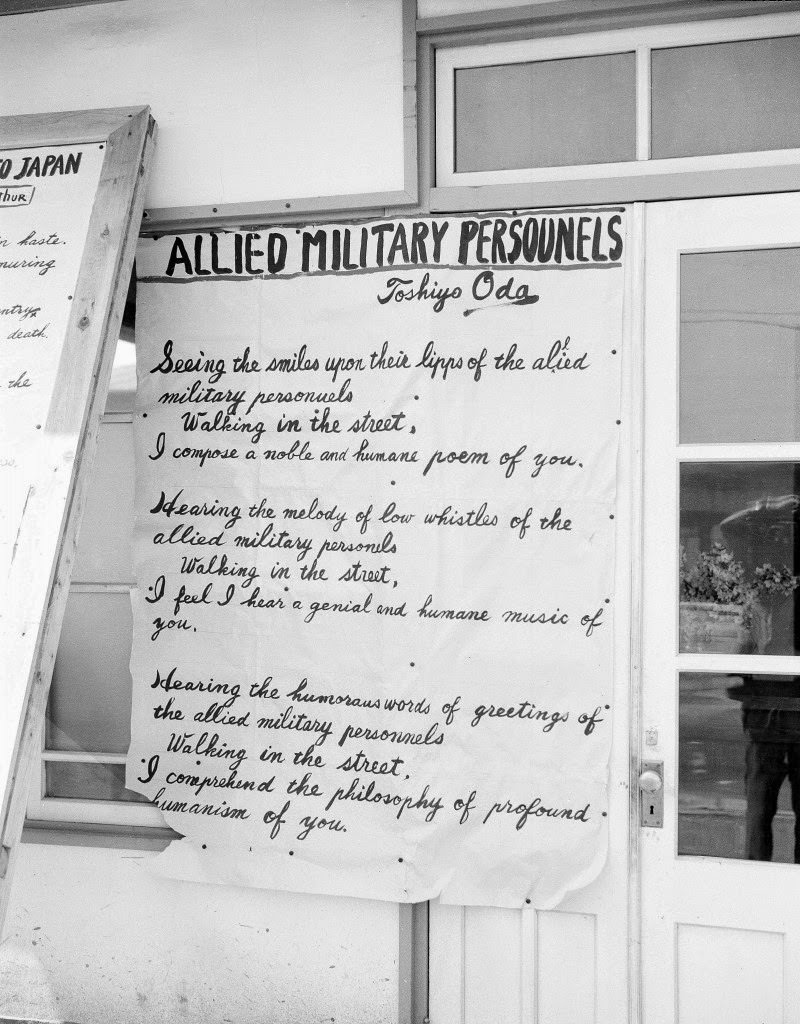 TO JAPAN
THUR
in haste.
muring
entry
death.
the
ALLIED MILITARY PERSOUNELS
Toshiyo Oda
Seeing the smiles upon their lipps of the alied
military personuels
Walking in the street,
I compose a noble and humane poem of you.
Hearing the melody of low whistles of the
allied military personels
Walking in the street,
I feel I hear a genial and humane music of
you.
Hearing the humoraus words of greetings of
the allied military personnels
Walking in the street,
I comprehend the philosophy of profound
humanism of you.